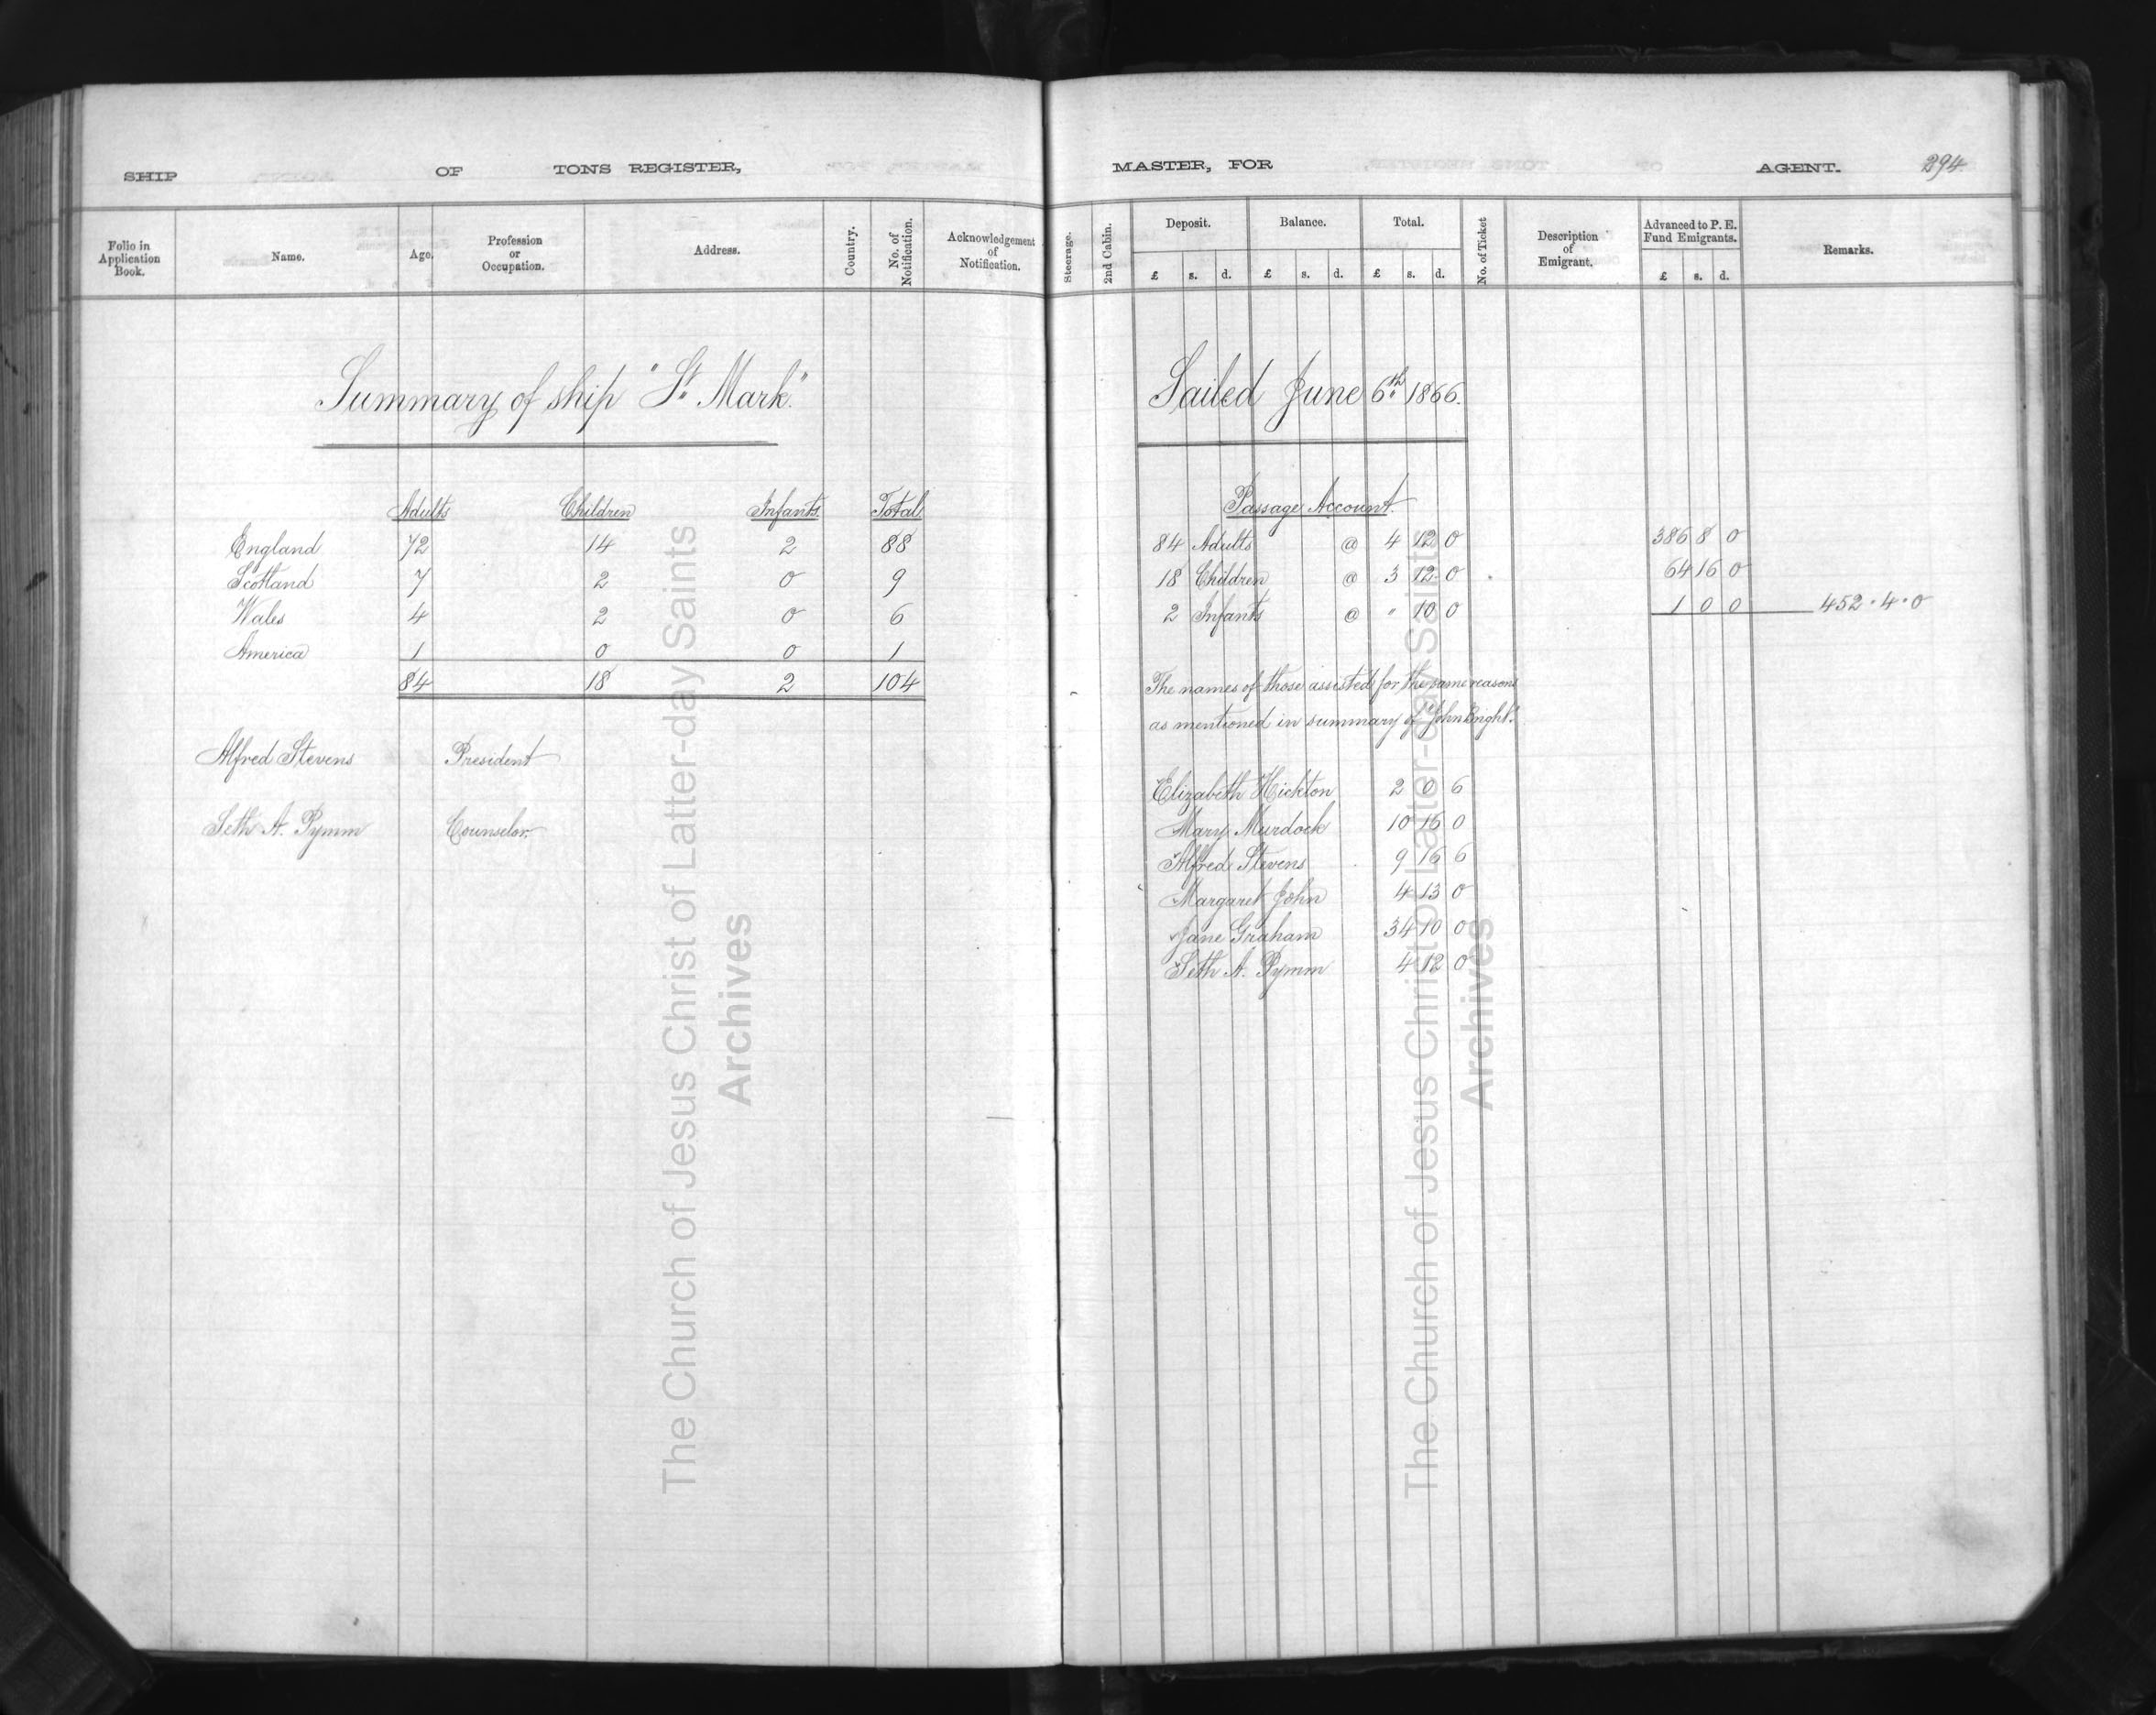 SHIP OF TONS REGISTER, MASTER, FOR AGENT. 294
Folio in Application Book. Name. Age. Profession or Occupation. Address. Country. No. of Notification. Acknowledgement of Notification. Steerage. 2nd Cabin. Deposit. £ s. d. Balance. £ s. d. Total. £ s. d. No. of Ticket Description of Emigrant. Advanced to P. E. Fund Emigrants. £ s. d. Remarks.
Summary of ship "St. Mark."
Adults Children Infants. Total
England 72 14 2 88
Scotland 7 2 0 9
Wales 4 2 0 6
America 1 0 0 1
84 18 2 104
Alfred Stevens President
Seth A. Pymm Counselor.
Sailed June 6th 1866.
Passage Account.
84 Adults @ 4 12 0 386 8 0
18 Children @ 3 12 0 64 16 0
2 Infants @ " 10 0 1 0 0 452 . 4 . 0
The names of those assisted for the same reasons
as mentioned in summary of "John Bright."
Elizabeth Hickton 2 0 6
Mary Murdock 10 16 0
Alfred Stevens 9 16 6
Margaret John 4 13 0
Jane Graham 34 10 0
Seth A. Pymm 4 12 0
The Church of Jesus Christ of Latter-day Saints
Archives
The Church of Jesus Christ of Latter-day Saints
Archives